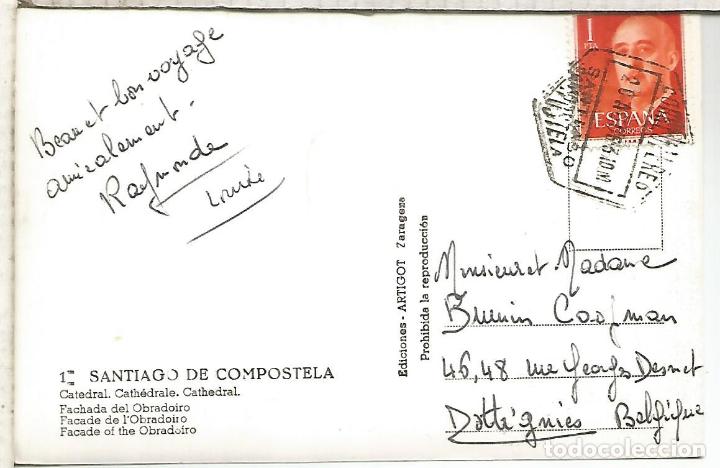 Beau et bon voyage
amicalement -
Raymonde
Louise
1 SANTIAGO DE COMPOSTELA
Catedral. Cathédrale. Cathedral.
Fachada del Obradoiro
Facade de l'Obradoiro
Facade of the Obradoiro
Ediciones - ARTIGOT Zaragoza
Prohibida la reproducción
1
PTA
ESPAÑA
CORREOS
SANTIAGO
COMPOSTELA
Monsieur et Madame
Coofman
46,48 rue Georges Desmet
Dottignies Belgique
todocoleccion